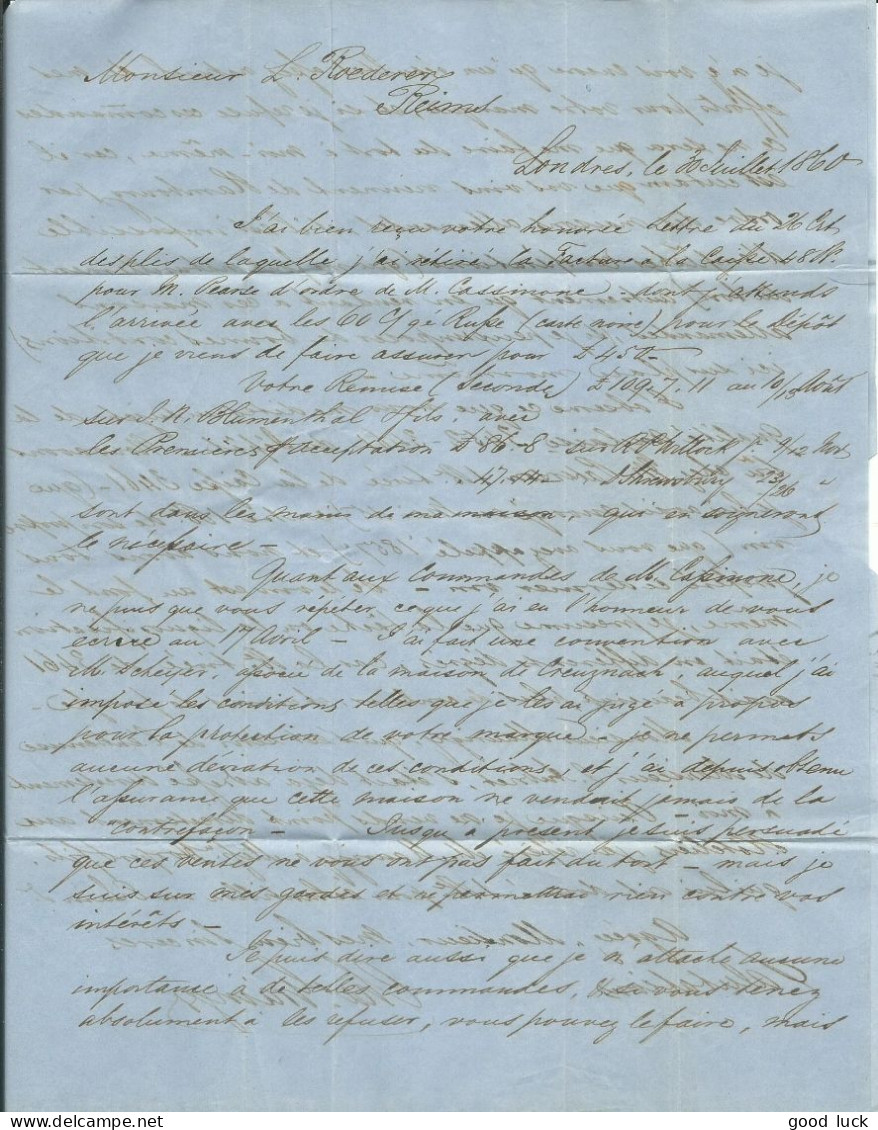 Monsieur L. Roederer
Reims
Londres, le 30 Juillet 1860
J'ai bien reçu votre honorée Lettre du 26 Ct
des plis de laquelle j'ai rétiré la Facture à la Caisse 48 Bt
pour M. Pearse d'ordre de M. Cassinone, dont j'attends
l'arrivée avec les 60 C/ gé Russe (carte noire) pour le Dépôt
que je viens de faire assurer pour £450-
Votre Remise (Seconde) £109.7.11 au 10/13 Août
sur J. N. Blumenthal & fils, avec
les Premières d'acceptation £86-8- sur R. Phillock 9/12 Nov
23/26
sont dans les mains de ma maison, qui en soigneront
le nécessaire -
Quant aux Commandes de M. Cassinone, je
ne puis que vous répéter, ce que j'ai eu l'honneur de vous
écrire au 17 Avril - J'ai fait une convention avec
M. Scheyer, associé de la maison de Creuznach, auquel j'ai
imposé les conditions telles que je les ai jugé à propos
pour la protection de votre marque - je ne permets
aucune déviation de ces conditions, et j'ai depuis obtenu
l'assurance que cette maison ne vendrait jamais de la
"contrefaçon - Jusqu'à présent je suis persuadé
que ces ventes ne vous ont pas fait du tort - mais je
suis sur mes gardes et ne permettrai rien contre vos
intérêts -
Je puis dire aussi que je n'attache aucune
importance à de telles commandes, & si vous tenez
absolument à les refuser, vous pouvez le faire, mais
good luck